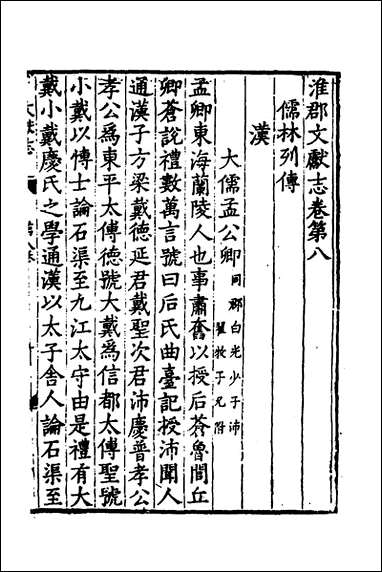 淮郡文獻志卷第八
儒林列傳
漢
大儒孟公卿同郡白光少子沛
翟牧子兄附
孟卿東海蘭陵人也事蕭奮以授后蒼魯閭丘
卿蒼說禮數萬言號曰后氏曲臺記授沛聞人
通漢子方梁戴德延君戴聖次君沛慶普孝公
孝公爲東平太傅德號大戴爲信都太傅聖號
小戴以博士論石渠至九江太守由是禮有大
戴小戴慶氏之學通漢以太子舍人論石渠至